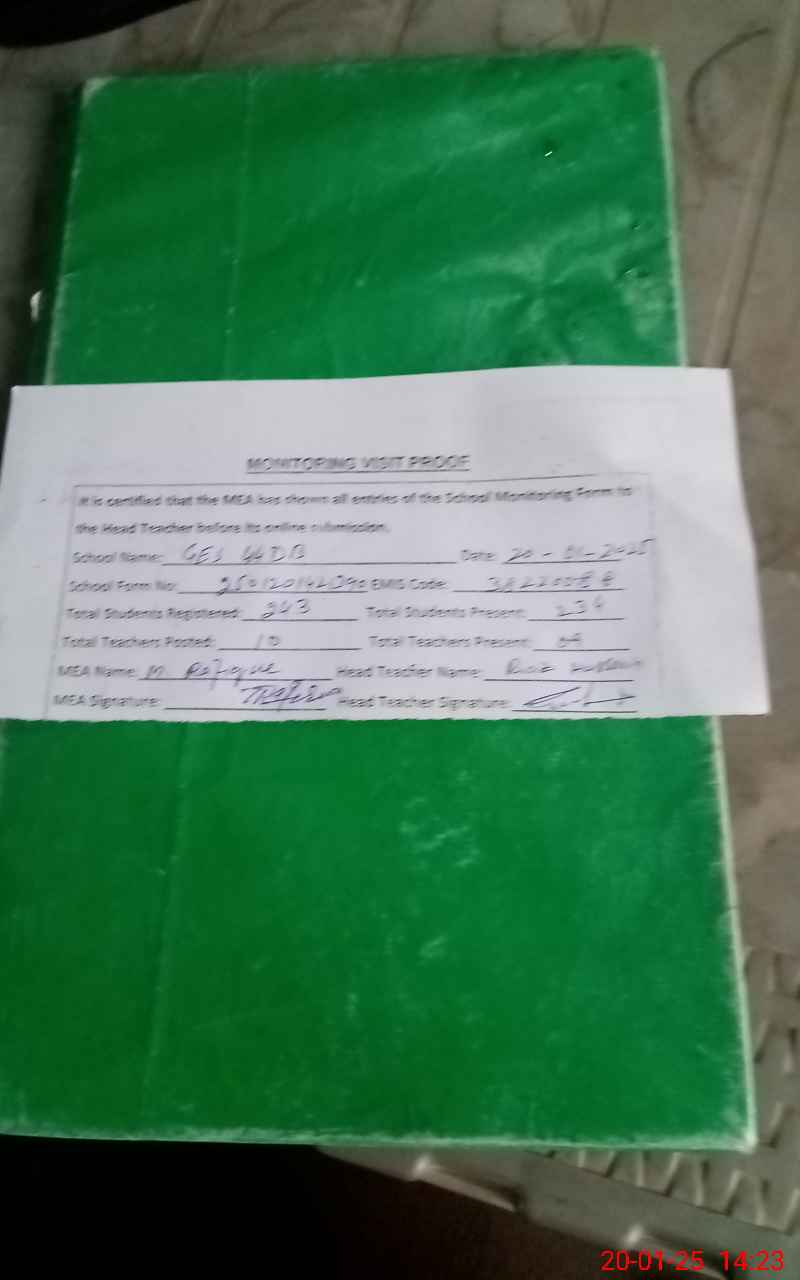 MONITORING VISIT PROOF
It is certified that the MEA has shown all entries of the School Monitoring Form to
the Head Teacher before its online submission.
School Name: GES 44 DB Date: 20-01-2025
School Form No: EMIS Code:
Total Students Registered: 243 Total Students Present: 234
Total Teachers Posted: 10 Total Teachers Present: 09
MEA Name: M. Rafique Head Teacher Name:
MEA Signature: Head Teacher Signature:
20-01-25 14:23